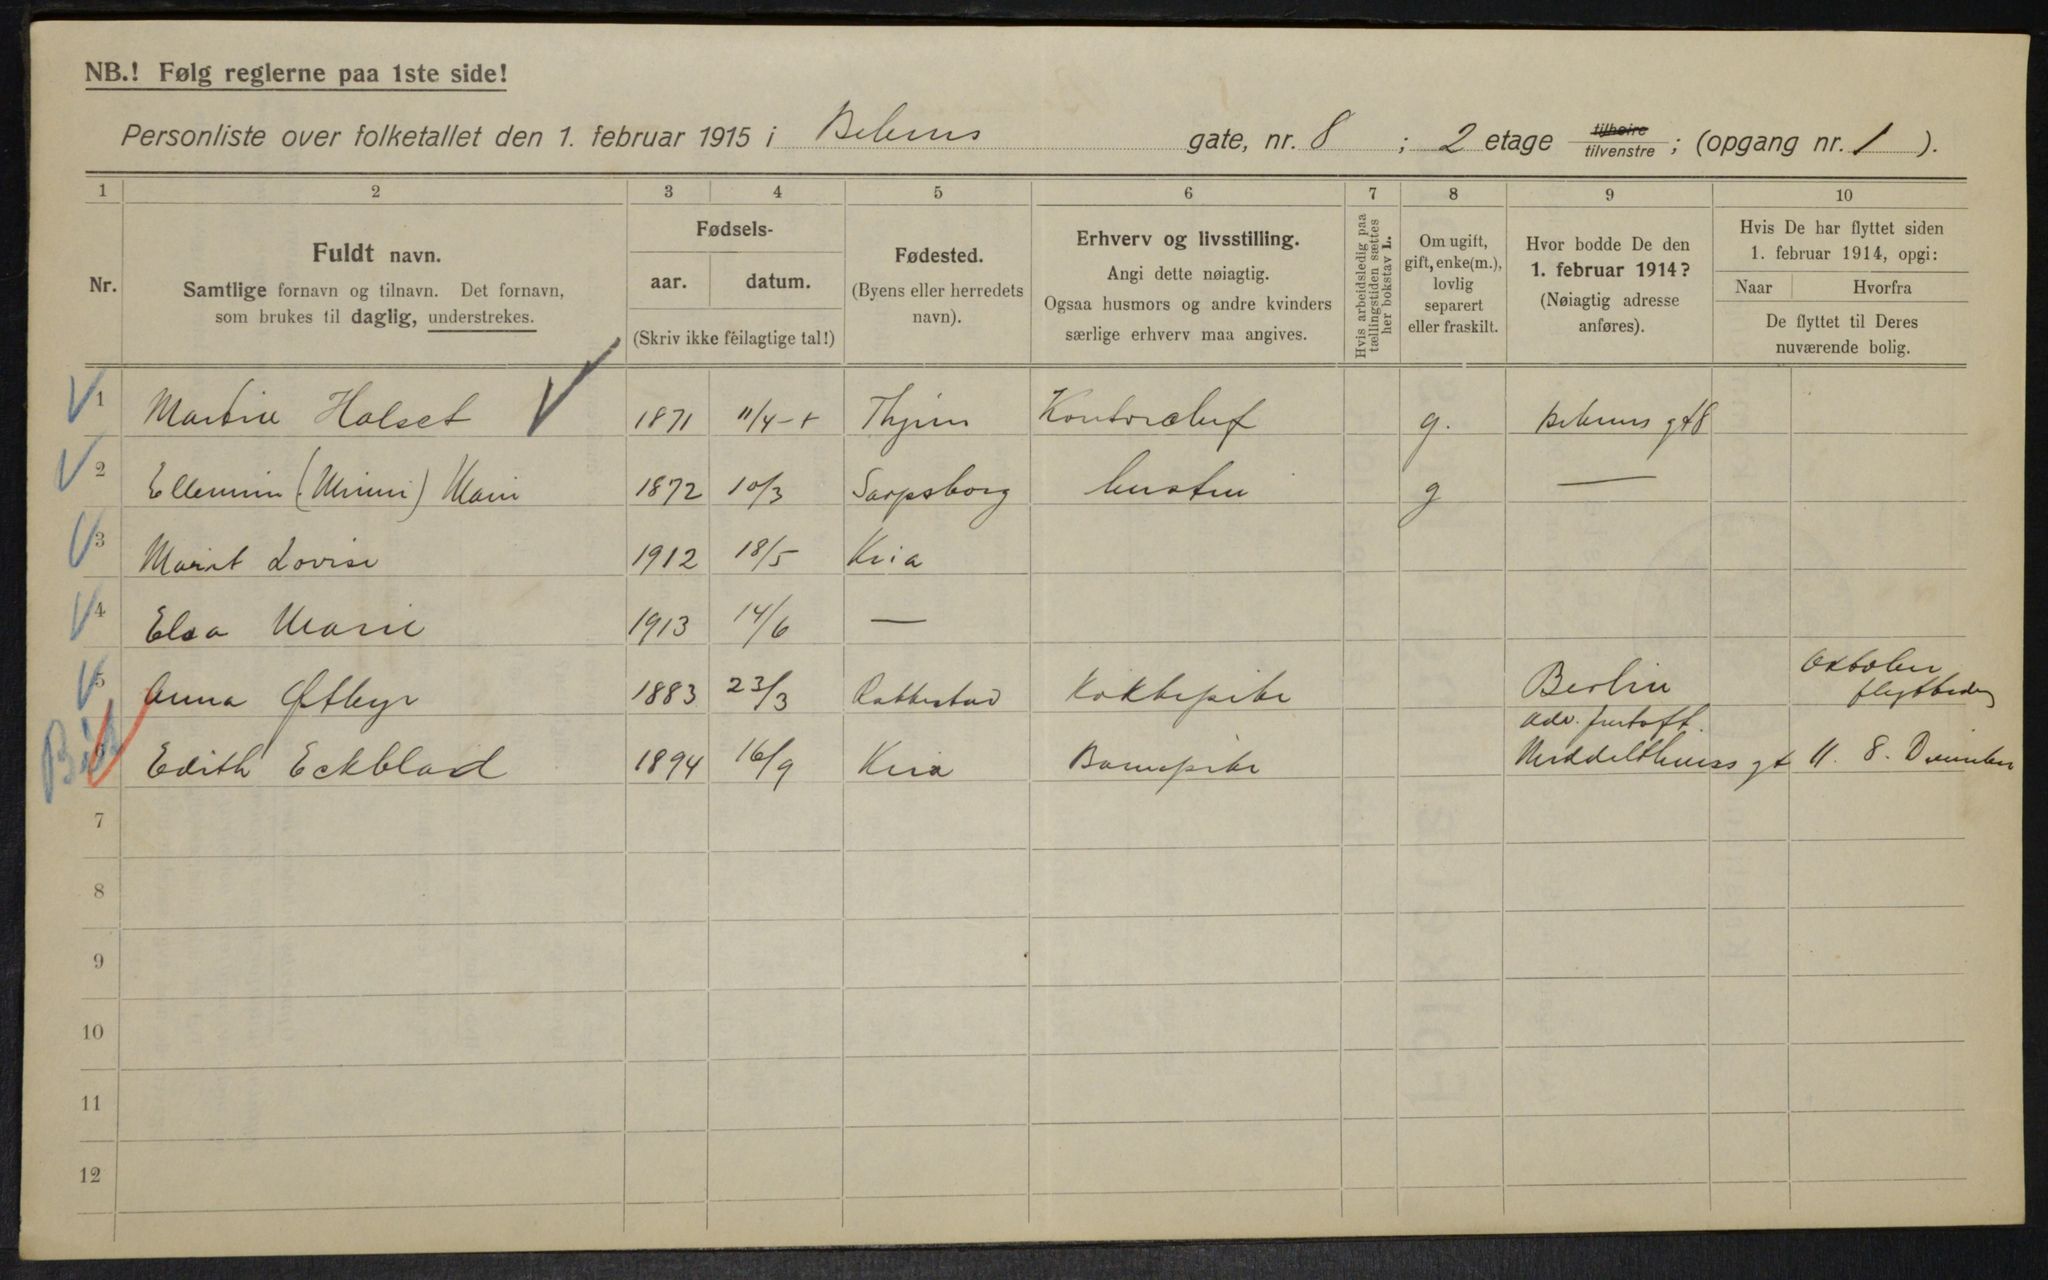 NB.! Følg reglerne paa 1ste side!
Personliste over folketallet den 1. februar 1915 i Behrens gate, nr. 8 ; 2 etage tilhøire tilvenstre ; (opgang nr. 1 ).
1 2 3 4 5 6 7 8 9 10
Nr.
Fuldt navn.
Samtlige fornavn og tilnavn. Det fornavn,
som brukes til daglig, understrekes.
Fødsels-
aar. datum.
(Skriv ikke feilagtige tal!)
Fødested.
(Byens eller herredets
navn).
Erhverv og livsstilling.
Angi dette nøiagtig.
Ogsaa husmors og andre kvinders
særlige erhverv maa angives.
Hvis arbeidsledig paa
tællingstiden sættes
her bokstav L.
Om ugift,
gift, enke(m.),
lovlig
separert
eller fraskilt.
Hvor bodde De den
1. februar 1914?
(Nøiagtig adresse
anføres).
Hvis De har flyttet siden
1. februar 1914, opgi:
Naar Hvorfra
De flyttet til Deres
nuværende bolig.
1 Halset 1871 11/4 Kontorchef g. Behrens gt 8
2 (Minni) 1872 10/3 Sarpsborg hustru g —
3 Marit Lovise 1912 18/5 Kria
4 Elsa Marie 1913 14/6 —
5 Anna 1883 23/3 Rakkestad Kokkepike Berlin Oktober
6 Edith Eckblad 1894 16/9 Kria Barnepike Middelthuns gt 11. 8. December
7
8
9
10
11
12